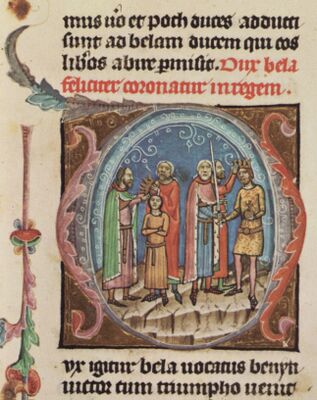 mus uō et Poch duces adducti
sunt ad belam ducem qui eos
lib̄os abire p̱misit. Dux bela
feliciter coronatur in regem.
ux igitur bela uocatus benyn
uictor cum triumpho uenit